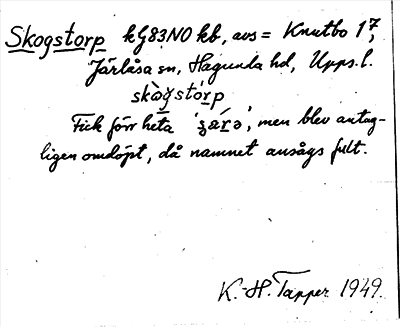 Skogstorp kG83NO kb, avs = Knutbo 1⁷,
Järlåsa sn, Hagunda hd, Upps. l.
skògstórp
Fick förr heta ', men blev antag-
ligen omdöpt, då namnet ansågs fult.
K.-H. Tapper 1949.